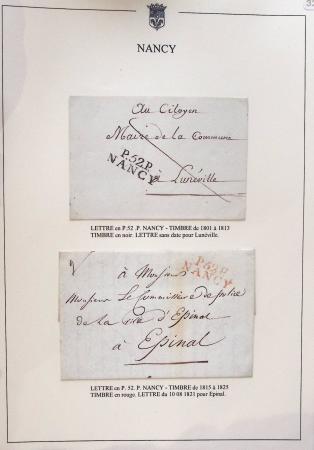 NANCY
Au Citoyen
Maire de la Commune
P.52.P.
NANCY
à Lunéville
LETTRE en P.52 .P. NANCY - TIMBRE de 1801 à 1813
TIMBRE en noir. LETTRE sans date pour Lunéville.
à Monsieur
P.52.P.
NANCY
Monsieur Le Commissaire de police
de la ville d'Epinal
à Epinal
LETTRE en P. 52. P. NANCY - TIMBRE de 1815 à 1825
TIMBRE en rouge. LETTRE du 10 08 1821 pour Epinal.